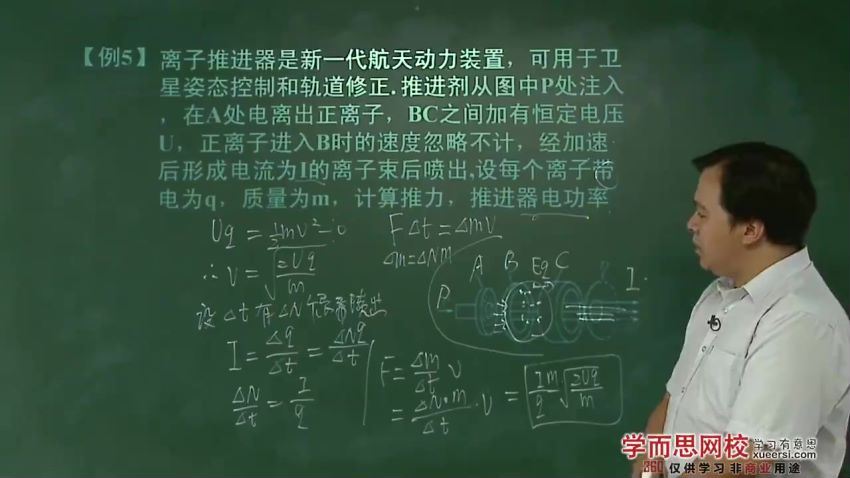 【例5】离子推进器是新一代航天动力装置，可用于卫
星姿态控制和轨道修正.推进剂从图中P处注入
，在A处电离出正离子，BC之间加有恒定电压
U，正离子进入B时的速度忽略不计，经加速
后形成电流为I的离子束后喷出,设每个离子带
电为q，质量为m，计算推力，推进器电功率
Uq = 1/2 mv² - 0
∴ v = √(2Uq/m)
设 Δt 有 ΔN 个
喷出
I = Δq/Δt = ΔNq/Δt
ΔN/Δt = I/q
FΔt = Δmv
Δm = ΔNm
P A B Eq C I
F = Δm/Δt v
= ΔN·m/Δt · v = Im/q √(2Uq/m)
学而思网校 学习有意思
xueersi.com
360 仅供学习 非商业用途